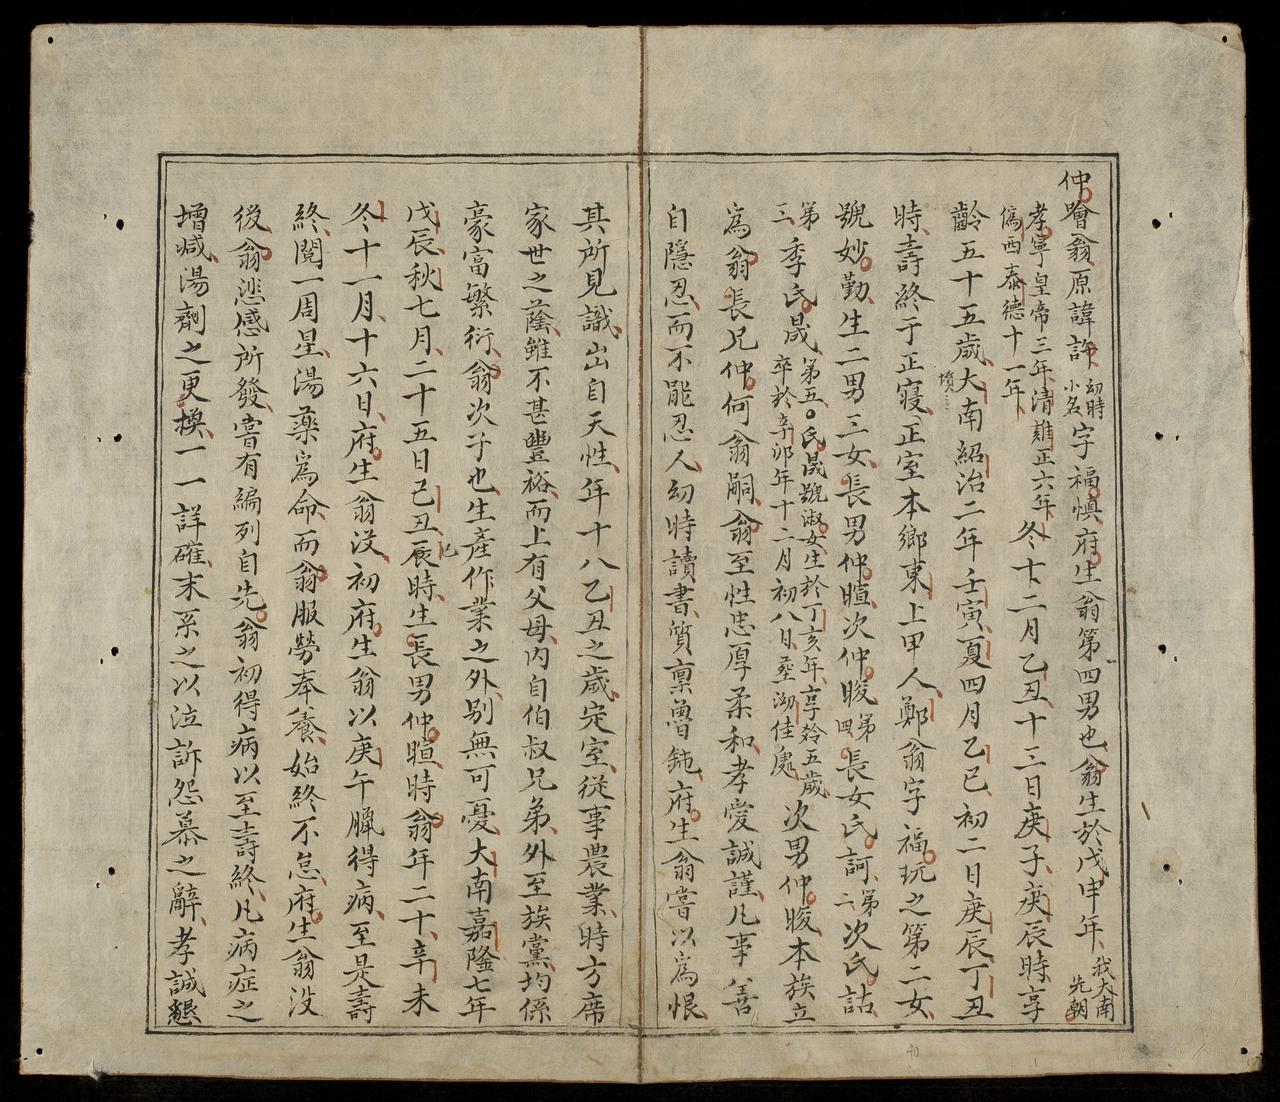 仲噲翁原諱許幼時小名字福慎府生翁第四男也翁生於戊申年我大南先朝
孝寧皇帝三年清雍正六年偽西泰德十一年冬十二月乙丑十三日庚子庚辰時享
齡五十五歲大南紹治二年壬寅夏四月乙巳初二日庚辰丁丑
時壽終于正寢正室本鄉東上甲人鄭翁字福玩之第二女
號妙勤生二男三女長男仲暄次仲晙第四長女氏訶第二次氏詁
第三季氏晟第五氏晟號淑女生於丁亥年享齡五歲卒於辛卯年十二月初八日塟汭佳處次男仲晙本族立
為翁長兄仲何翁嗣翁至性忠厚柔和孝愛誠謹凡事善
自隱忍而不能忍人幼時讀書質稟魯鈍府生翁嘗以為恨
其所見識出自天性年十八乙丑之歲定室從事農業時方席
家世之蔭雖不甚豐裕而上有父母內自伯叔兄弟外至族黨均係
豪富繁衍翁次子也生產作業之外別無可憂大南嘉隆七年
戊辰秋七月二十五日己丑辰時生長男仲暄時翁年二十辛未
冬十一月十六日府生翁沒初府生翁以庚午臘得病至是壽
終閱一周星湯藥為命而翁服勞奉養始終不怠府生翁沒
後翁悲感所發嘗有編列自先翁初得病以至壽終凡病症之
增減湯劑之更換一一詳確末系之以泣訴怨慕之辭孝誠懇